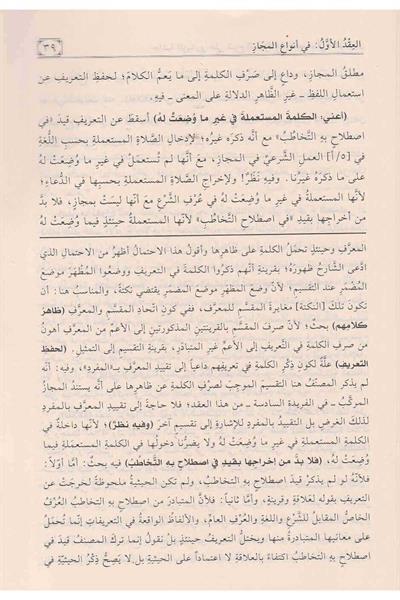 العِقْدُ الأوَّلُ: في أنواعِ المَجَازِ ٣٩
مطلقُ المجازِ، وداعٍ إلى صَرْفِ الكلمةِ إلى ما يَعمُّ الكلامَ؛ لحفظِ التعريفِ عن
استعمالِ اللفظِ ـ غيرِ الظّاهرِ الدلالةِ على المعنى ـ فيه.
(أعني: الكلمةَ المستعملةَ في غيرِ ما وُضِعَتْ لهُ) أسقطَ عن التعريفِ قيدَ «في
اصطلاحٍ بِهِ التَّخاطُبُ» مع أنَّه ذكرَه غيرُه؛ لإدخالِ الصَّلاةِ المستعملةِ بحسبِ اللُّغةِ
في [٥/أ] العملِ الشَّرعيِّ في المجازِ، معَ أنَّها لم تُستعمَلْ في غيرِ ما وُضِعَتْ لهُ
على ما ذكرَهُ غيرُنا. وفيهِ نَظَرٌ! ولإخراجِ الصَّلاةِ المستعملةِ بحسبِها في الدُّعاءِ؛
لأنَّها المستعملةُ في غيرِ ما وُضِعَتْ لهُ في عُرْفِ الشَّرعِ معَ أنَّها ليسَتْ بمجازٍ، فلا بدَّ
من إخراجِها بقيدِ «في اصطلاحٍ بِهِ التَّخاطُبُ» لأنَّها المستعملةُ حينئذٍ فيما وُضِعَتْ لهُ
المعرَّفِ وحينئذٍ تحمَلُ الكلمةُ على ظاهرِها وأقولُ هذا الاحتمالُ أظهرُ من الاحتمالِ الذي
ادَّعى الشَّارحُ ظهورَهُ؛ بقرينةِ أنَّهم ذكروا الكلمةَ في التعريفِ ووضعوا المُظهَرَ موضعَ
المُضْمَرِ عند التقسيمِ؛ لأنَّ وضعَ المظهَرِ موضعَ المضمَرِ يقتضي نكتةً، والمناسبُ هنا: أن
تكونَ تلكَ [النكتةُ] مغايرةَ المقسَّمِ للمعرَّفِ، ففي كونِ اتِّحادِ المقسَّمِ والمعرَّفِ (ظاهرَ
كلامِهم) بحثٌ؛ لأنَّ صرفَ المقسَّمِ بالقرينتينِ المذكورتينِ إلى الأعمِّ من المعرَّفِ أهونُ
من صرفِ الكلمةِ في التَّعريفِ إلى الأعمِّ غيرِ المتبادَرِ، بقرينةِ التقسيمِ إلى التمثيلِ. (لحفظِ
التعريفِ) علَّةٌ لكونِ ذكرِ الكلمةِ في تعريفِهم داعياً إلى تقييدِ المعرَّفِ بـ«المفردِ»، وفيه: أنَّه
لم يذكرِ المصنِّفُ هنا التقسيمَ الموجبَ لصرفِ الكلمةِ عن ظاهرِها على أنَّه يستندُ المجازُ
المركَّبُ ـ في الفريدةِ السادسةِ ـ من هذا العقدِ؛ فلا حاجةَ إلى تقييدِ المعرَّفِ بالمفردِ
لذلكَ الغرضِ بل التقييدُ بالمفردِ للإشارةِ إلى تقسيمٍ آخرَ (وفيهِ نظرٌ!)؛ لأنَّها داخلةٌ في
الكلمةِ المستعملةِ في غيرِ ما وُضِعَتْ لهُ ولا يضرُّنا دخولُها في الكلمةِ المستعملةِ فيما
وُضِعَتْ لهُ، (فلا بدَّ من إخراجِها بقيدِ في اصطلاحٍ بِهِ التَّخاطُبُ) فيه بحثٌ: أمَّا أولاً:
فلأنَّه لو لم يذكرْ قيدَ في اصطلاحٍ بِهِ التخاطبُ، ولم تكنِ الحيثيةُ ملحوظةً لخرجَتْ عن
التعريفِ بقوله لعَلاقةٍ وقرينةٍ، وأمَّا ثانياً: فلأنَّ المتبادرَ من اصطلاحٍ بِهِ التخاطبُ العُرْفُ
الخاصُّ المقابلُ للشَّرعِ واللغةِ والعُرْفِ العامِّ، والألفاظُ الواقعةُ في التعريفاتِ إنَّما تُحمَلُ
على معانيها المتبادرةِ منها ويختلُّ التعريفُ حينئذٍ بل نقولُ إنما تركَ المصنفُ قيدَ في
اصطلاحٍ بِهِ التخاطبُ اكتفاءً بالعلاقةِ لا اعتماداً على الحيثيةِ بل لا يَصِحُّ ذِكرُ الحيثيةِ في